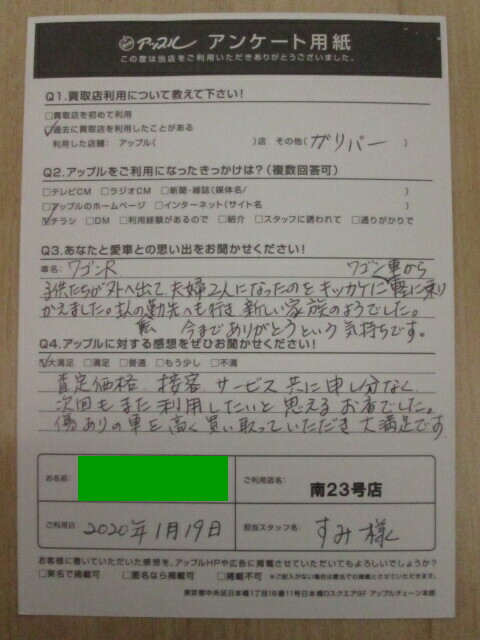 アップル アンケート用紙
この度は当店をご利用いただきありがとうございました。
Q1.買取店利用について教えて下さい!
□買取店を初めて利用
☑過去に買取店を利用したことがある
利用した店舗: アップル( )店 その他(ガリバー )
Q2.アップルをご利用になったきっかけは?(複数回答可)
□テレビCM □ラジオCM □新聞・雑誌(媒体名/ )
☑アップルのホームページ □インターネット(サイト名 )
☑チラシ □DM □利用経験があるので □紹介 □スタッフに誘われて □通りがかりで
Q3.あなたと愛車との思い出をお聞かせください!
車名: ワゴンR ワゴン車から
子供たちが外へ出て、夫婦2人になったのをキッカケに軽に乗り
かえました。主人の勤先へも行き、新しい家族のようでした。
今までありがとうという気持ちです。
Q4.アップルに対する感想をぜひお聞かせください!
☑大満足 □満足 □普通 □もう少し □不満
査定価格、接客、サービス共に申し分なく
次回もまた利用したいと思えるお店でした。
傷ありの車を高く買い取っていただき大満足です
お名前
ご利用店名: 南23号店
ご利用日 2020年1月19日 担当スタッフ名 すみ様
お客様に書いていただいた感想を、アップルHPや広告に掲載させていただいてもよろしいでしょうか?
□実名で掲載可 □匿名なら掲載可 □掲載不可 ※ご記入がない場合は匿名での掲載とさせていただきます。
東京都中央区日本橋1丁目16番11号日本橋Dスクエア9F アップルチェーン本部